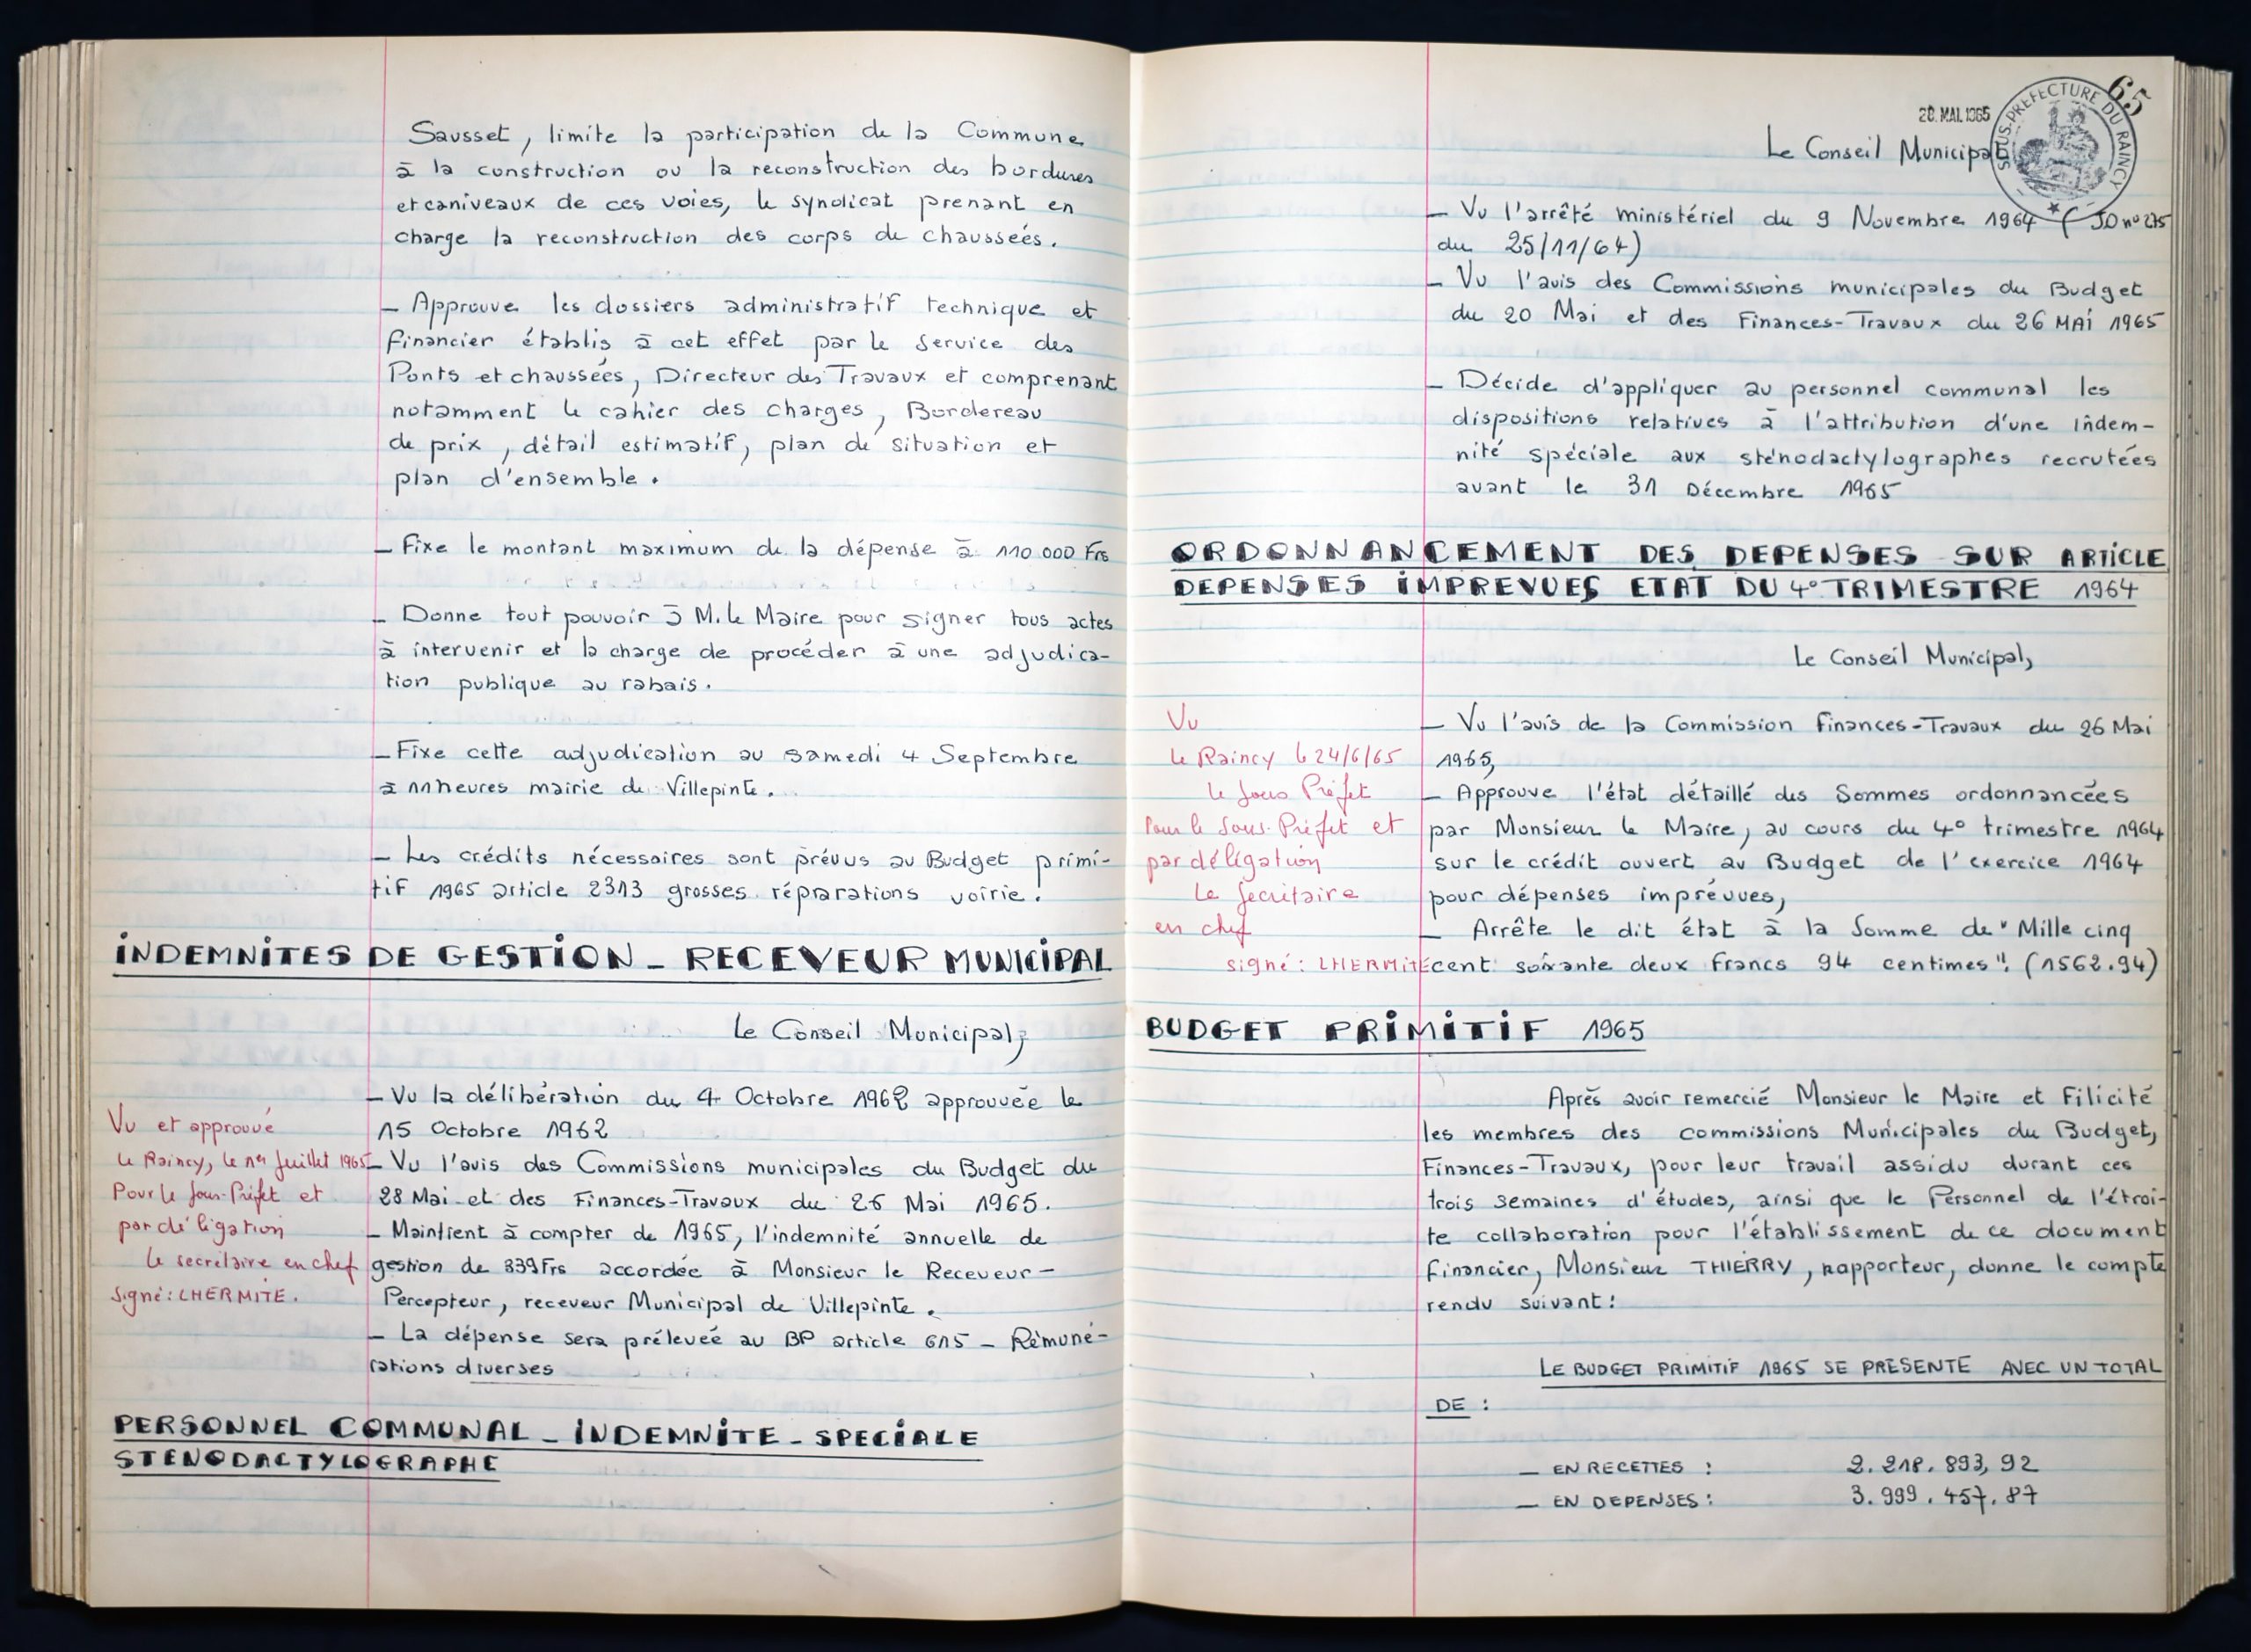 Sausset, limite la participation de la Commune
à la construction ou la reconstruction des bordures
et caniveaux de ces voies, le syndicat prenant en
charge la reconstruction des corps de chaussées.
- Approuve les dossiers administratif technique et
financier établis à cet effet par le service des
Ponts et chaussées, Directeur des Travaux et comprenant
notamment le cahier des charges, Bordereau
de prix, détail estimatif, plan de situation et
plan d'ensemble.
- Fixe le montant maximum de la dépense à 110 000 Frs
- Donne tout pouvoir à M. le Maire pour signer tous actes
à intervenir et la charge de procéder à une adjudica-
tion publique au rabais.
- Fixe cette adjudication au samedi 4 Septembre
à 11 heures mairie de Villepinte.
- Les crédits nécessaires sont prévus au Budget primi-
tif 1965 article 2313 grosses réprarations voirie.
INDEMNITES DE GESTION - RECEVEUR MUNICIPAL
Le Conseil Municipal,
- Vu la délibération du 4 Octobre 1962 approuvée le
15 Octobre 1962
- Vu l'avis des Commissions municipales du Budget du
28 Mai et des Finances-Travaux du 26 Mai 1965.
- Maintient à compter de 1965, l'indemnité annuelle de
gestion de 339 Frs accordée à Monsieur le Receveur-
Percepteur, receveur Municipal de Villepinte.
- La dépense sera prélevée au BP article 615 - Rémuné-
rations diverses
Vu et approuvé
Le Raincy, le 1er Juillet 1965
Pour le Sous-Préfet et
par déligation
Le secrétaire en chef
Signé: LHERMITE.
PERSONNEL COMMUNAL - INDEMNITE - SPECIALE
STENODACTYLOGRAPHE
65
28. MAI. 1965
SOUS-PREFECTURE DU RAINCY
Le Conseil Municipal
- Vu l'arrêté ministériel du 9 Novembre 1964 (JO n° 275
du 25/11/64)
- Vu l'avis des Commissions municipales du Budget
du 20 Mai et des Finances-Travaux du 26 MAI 1965
- Décide d'appliquer au personnel communal les
dispositions relatives à l'attribution d'une indem-
nité spéciale aux sténodactylographes recrutées
avant le 31 Décembre 1965
ORDONNANCEMENT DES DEPENSES SUR ARTICLE
DEPENSES IMPREVUES ETAT DU 4° TRIMESTRE 1964
Le Conseil Municipal,
- Vu l'avis de la Commission Finances-Travaux du 26 Mai
1965,
- Approuve l'état détaillé des Sommes ordonnancées
par Monsieur le Maire, au cours du 4° trimestre 1964
sur le crédit ouvert au Budget de l'exercice 1964
pour dépenses imprévues,
- Arrête le dit état à la Somme de "Mille cinq
cent soixante deux francs 94 centimes". (1562.94)
Vu
Le Raincy le 24/6/65
Le Sous Préfet
Pour le Sous-Préfet et
par déligation
Le Secrétaire
en chef
signé: LHERMITE
BUDGET PRIMITIF 1965
Après avoir remercié Monsieur le Maire et Filicité
les membres des commissions Municipales du Budget,
Finances-Travaux, pour leur travail assidu durant ces
trois semaines d'études, ainsi que le Personnel de l'étroi-
te collaboration pour l'établissement de ce document
financier, Monsieur THIERRY, rapporteur, donne le compte
rendu suivant:
LE BUDGET PRIMITIF 1965 SE PRESENTE AVEC UN TOTAL
DE :
- EN RECETTES : 2.218.893,92
- EN DEPENSES : 3.999.457.87